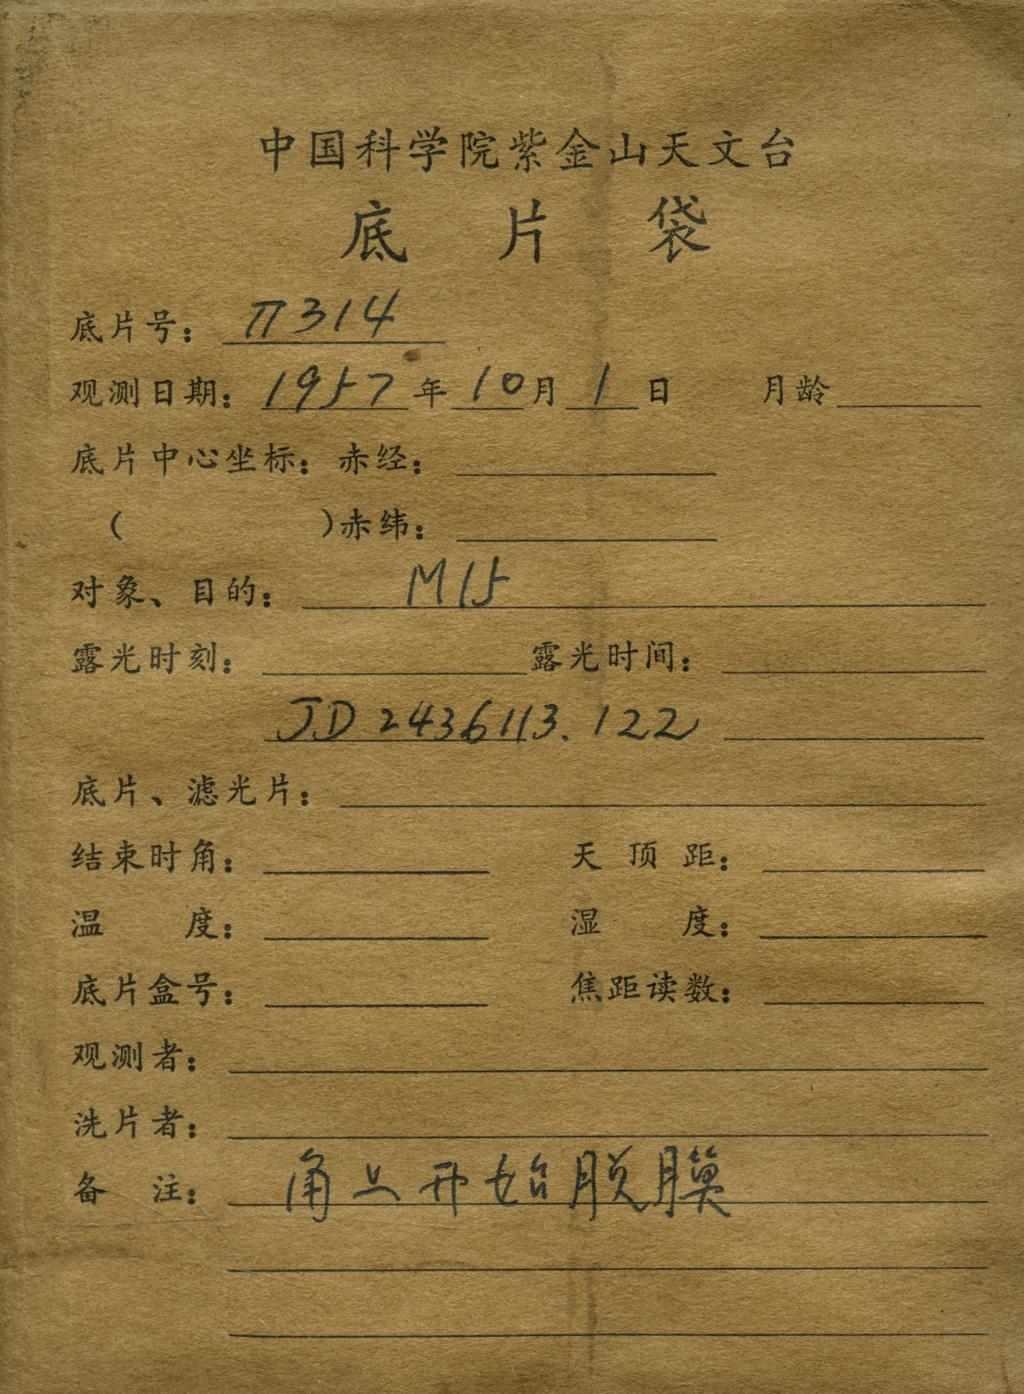 中国科学院紫金山天文台
底片袋
底片号：π314
观测日期：1957年10月1日 月龄
底片中心坐标：赤经：
（ ）赤纬：
对象、目的：M15
露光时刻： 露光时间：
JD 2436113.122
底片、滤光片：
结束时角： 天顶距：
温度： 湿度：
底片盒号： 焦距读数：
观测者：
洗片者：
备注：角上开始脱膜